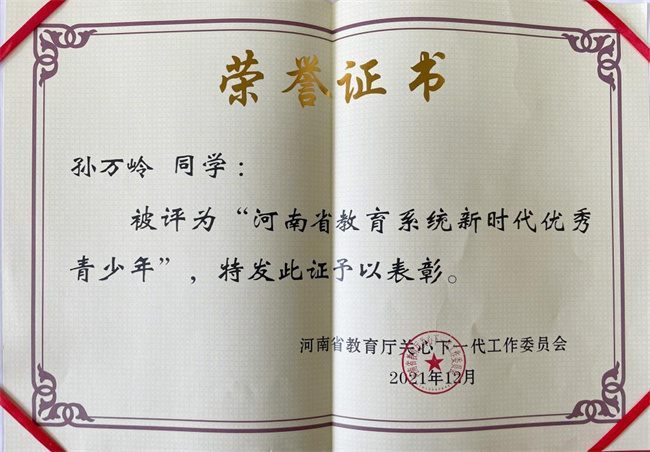 荣誉证书
孙万岭 同学：
被评为“河南省教育系统新时代优秀
青少年”，特发此证予以表彰。
河南省教育厅关心下一代工作委员会
2021年12月